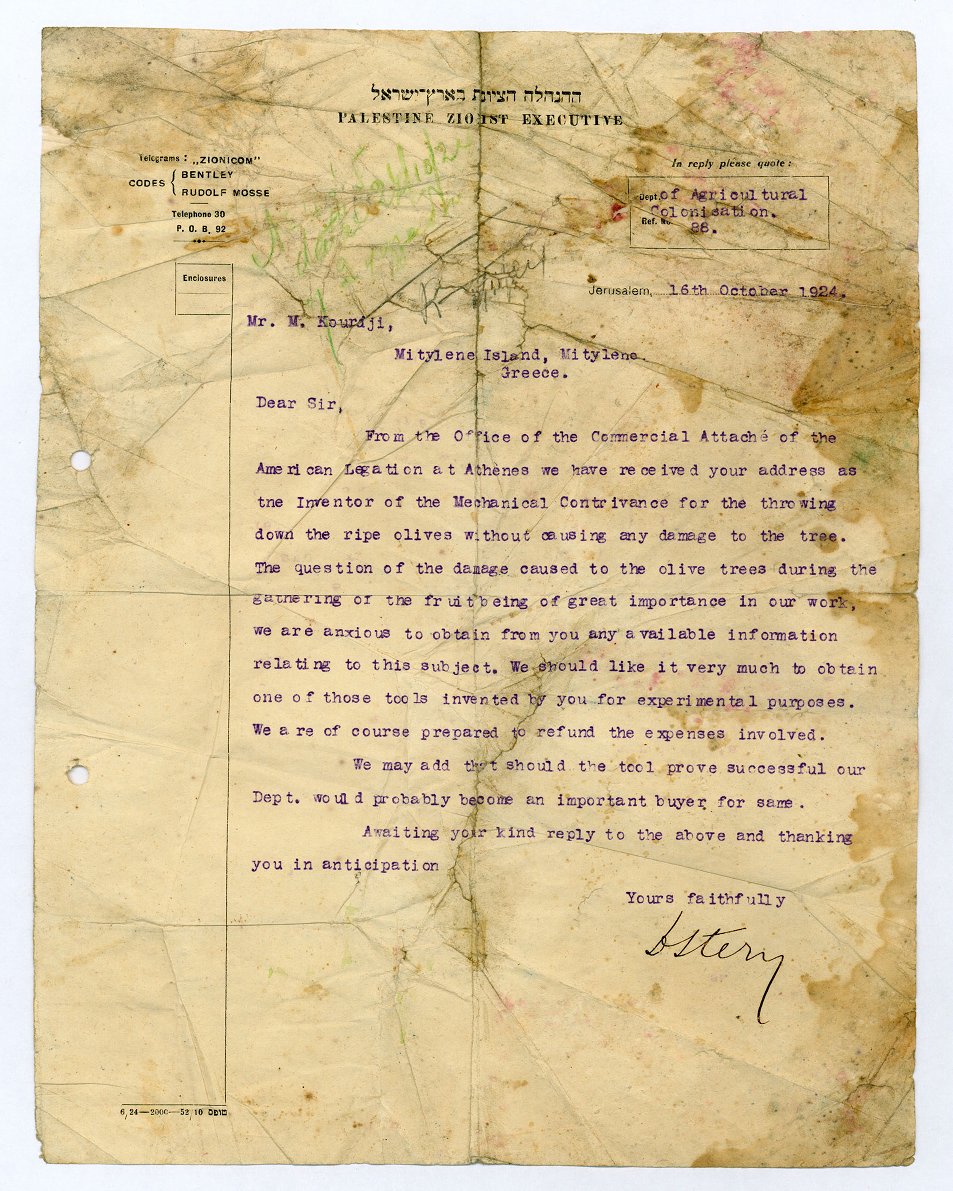 ההנהלה הציונית בארץ־ישראל
PALESTINE ZIONIST EXECUTIVE
Telegrams : „ZIONICOM"
CODES { BENTLEY
RUDOLF MOSSE
Telephone 30
P. O. B. 92
In reply please quote :
Dept. of Agricultural
Colonisation.
Ref. No. 88.
Enclosures
Jerusalem, 16th October 1924.
Mr. M. Kourdji,
Mitylene Island, Mitylene.
Greece.
Dear Sir,
From the Office of the Commercial Attaché of the
American Legation at Athènes we have received your address as
tne Inventor of the Mechanical Contrivance for the throwing
down the ripe olives without causing any damage to the tree.
The question of the damage caused to the olive trees during the
gathering of the fruit being of great importance in our work,
we are anxious to obtain from you any available information
relating to this subject. We should like it very much to obtain
one of those tools invented by you for experimental purposes.
We are of course prepared to refund the expenses involved.
We may add that should the tool prove successful our
Dept. would probably become an important buyer for same.
Awaiting your kind reply to the above and thanking
you in anticipation
Yours faithfully
DStern
6,24—2000—52/10 טופס